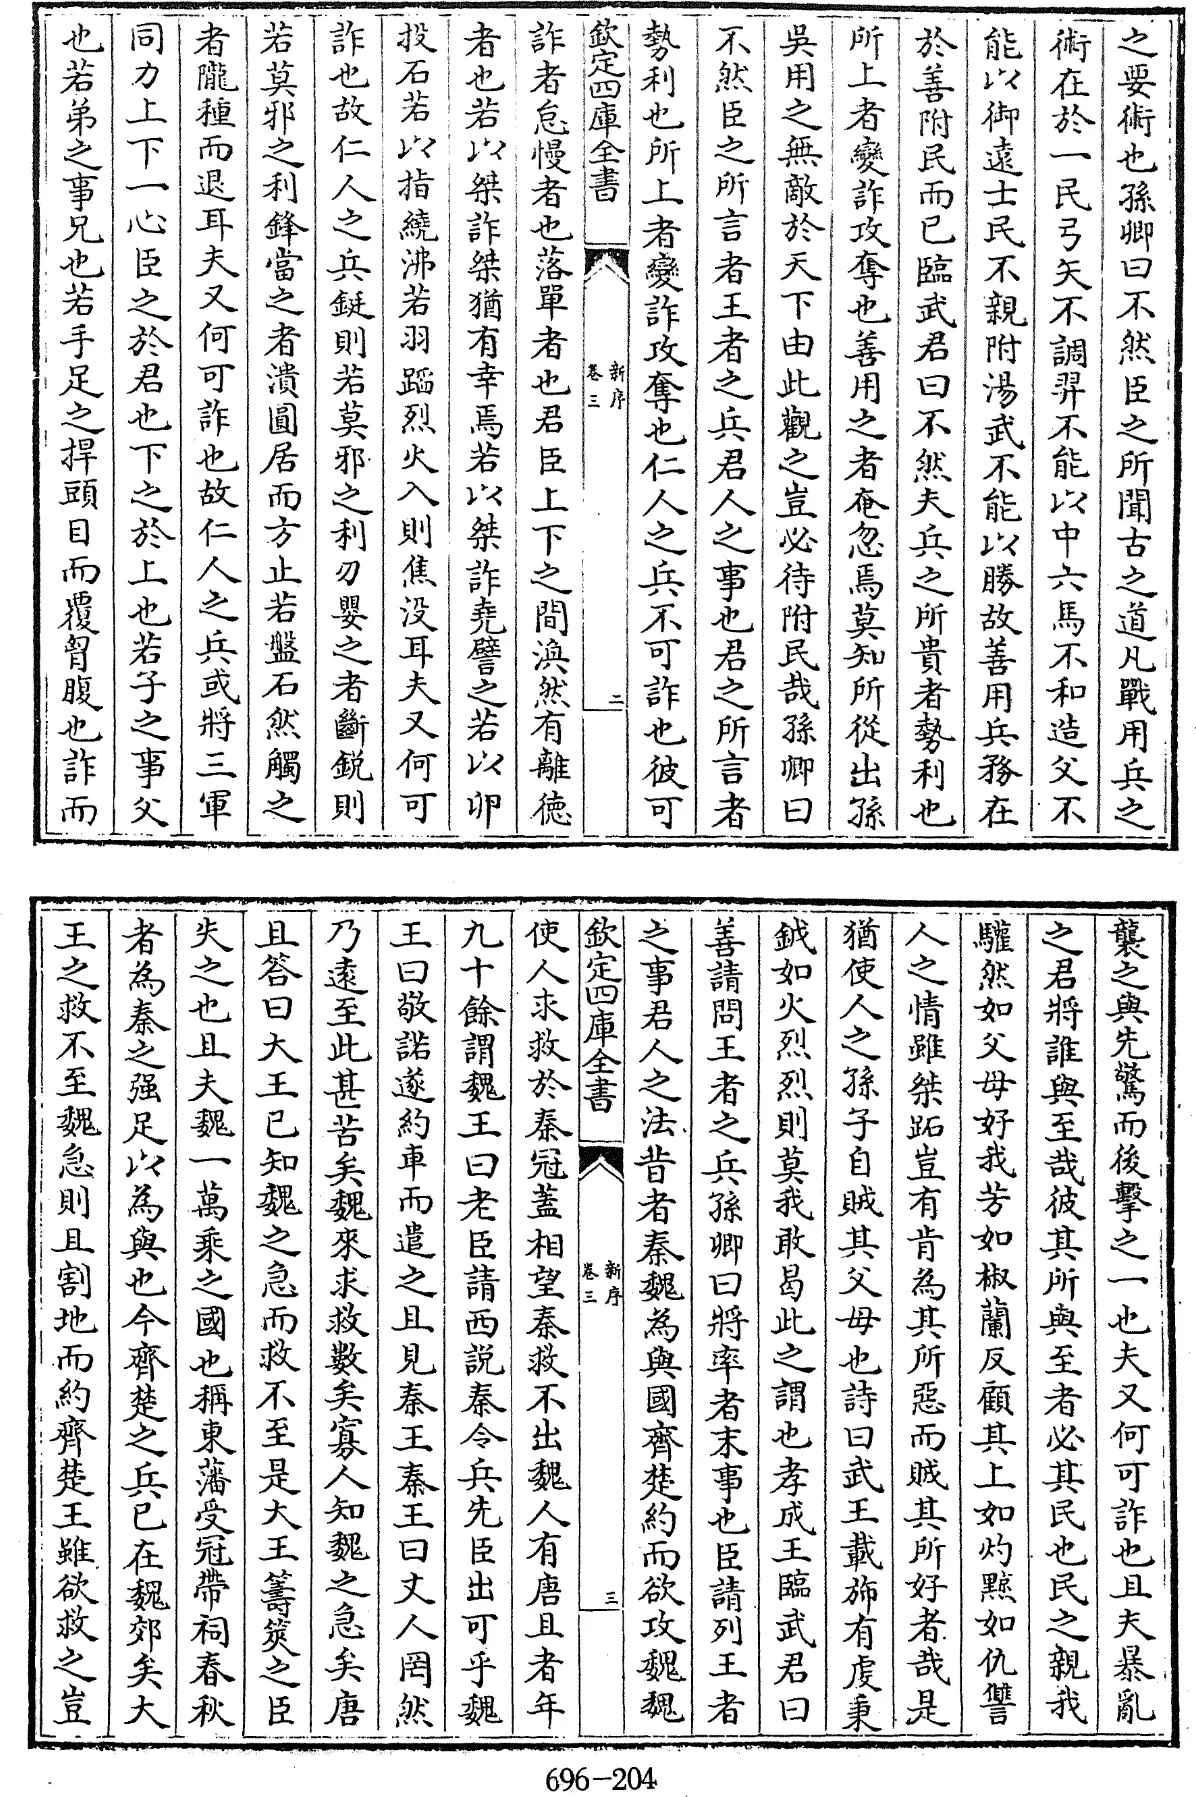 之要術也孫卿曰不然臣之所聞古之道凡戰用兵之
術在於一民弓矢不調羿不能以中六馬不和造父不
能以御遠士民不親附湯武不能以勝故善用兵務在
於善附民而已臨武君曰不然夫兵之所貴者勢利也
所上者變詐攻奪也善用之者奄忽焉莫知所從出孫
吳用之無敵於天下由此觀之豈必待附民哉孫卿曰
不然臣之所言者王者之兵君人之事也君之所言者
勢利也所上者變詐攻奪也仁人之兵不可詐也彼可
欽定四庫全書
新序
卷三
二
詐者怠慢者也落單者也君臣上下之間渙然有離德
者也若以桀詐桀猶有幸焉若以桀詐堯譬之若以卵
投石若以指繞沸若羽蹈烈火入則焦沒耳夫又何可
詐也故仁人之兵鋌則若莫邪之利刃嬰之者斷銳則
若莫邪之利鋒當之者潰圓居而方止若盤石然觸之
者隴種而退耳夫又何可詐也故仁人之兵或將三軍
同力上下一心臣之於君也下之於上也若子之事父
也若弟之事兄也若手足之捍頭目而覆胷腹也詐而
襲之與先驚而後擊之一也夫又何可詐也且夫暴亂
之君將誰與至哉彼其所與至者必其民也民之親我
驩然如父母好我芳如椒蘭反顧其上如灼黥如仇讐
人之情雖桀跖豈有肯為其所惡而賊其所好者哉是
猶使人之孫子自賊其父母也詩曰武王載斾有虔秉
鉞如火烈烈則莫我敢曷此之謂也孝成王臨武君曰
善請問王者之兵孫卿曰將率者末事也臣請列王者
之事君人之法昔者秦魏為與國齊楚約而欲攻魏魏
欽定四庫全書
新序
卷三
三
使人求救於秦冠蓋相望秦救不出魏人有唐且者年
九十餘謂魏王曰老臣請西說秦令兵先臣出可乎魏
王曰敬諾遂約車而遣之且見秦王秦王曰丈人罔然
乃遠至此甚苦矣魏來求救數矣寡人知魏之急矣唐
且答曰大王已知魏之急而救不至是大王籌筴之臣
失之也且夫魏一萬乘之國也稱東藩受冠帶祠春秋
者為秦之强足以為與也今齊楚之兵已在魏郊矣大
王之救不至魏急則且割地而約齊楚王雖欲救之豈
696-204